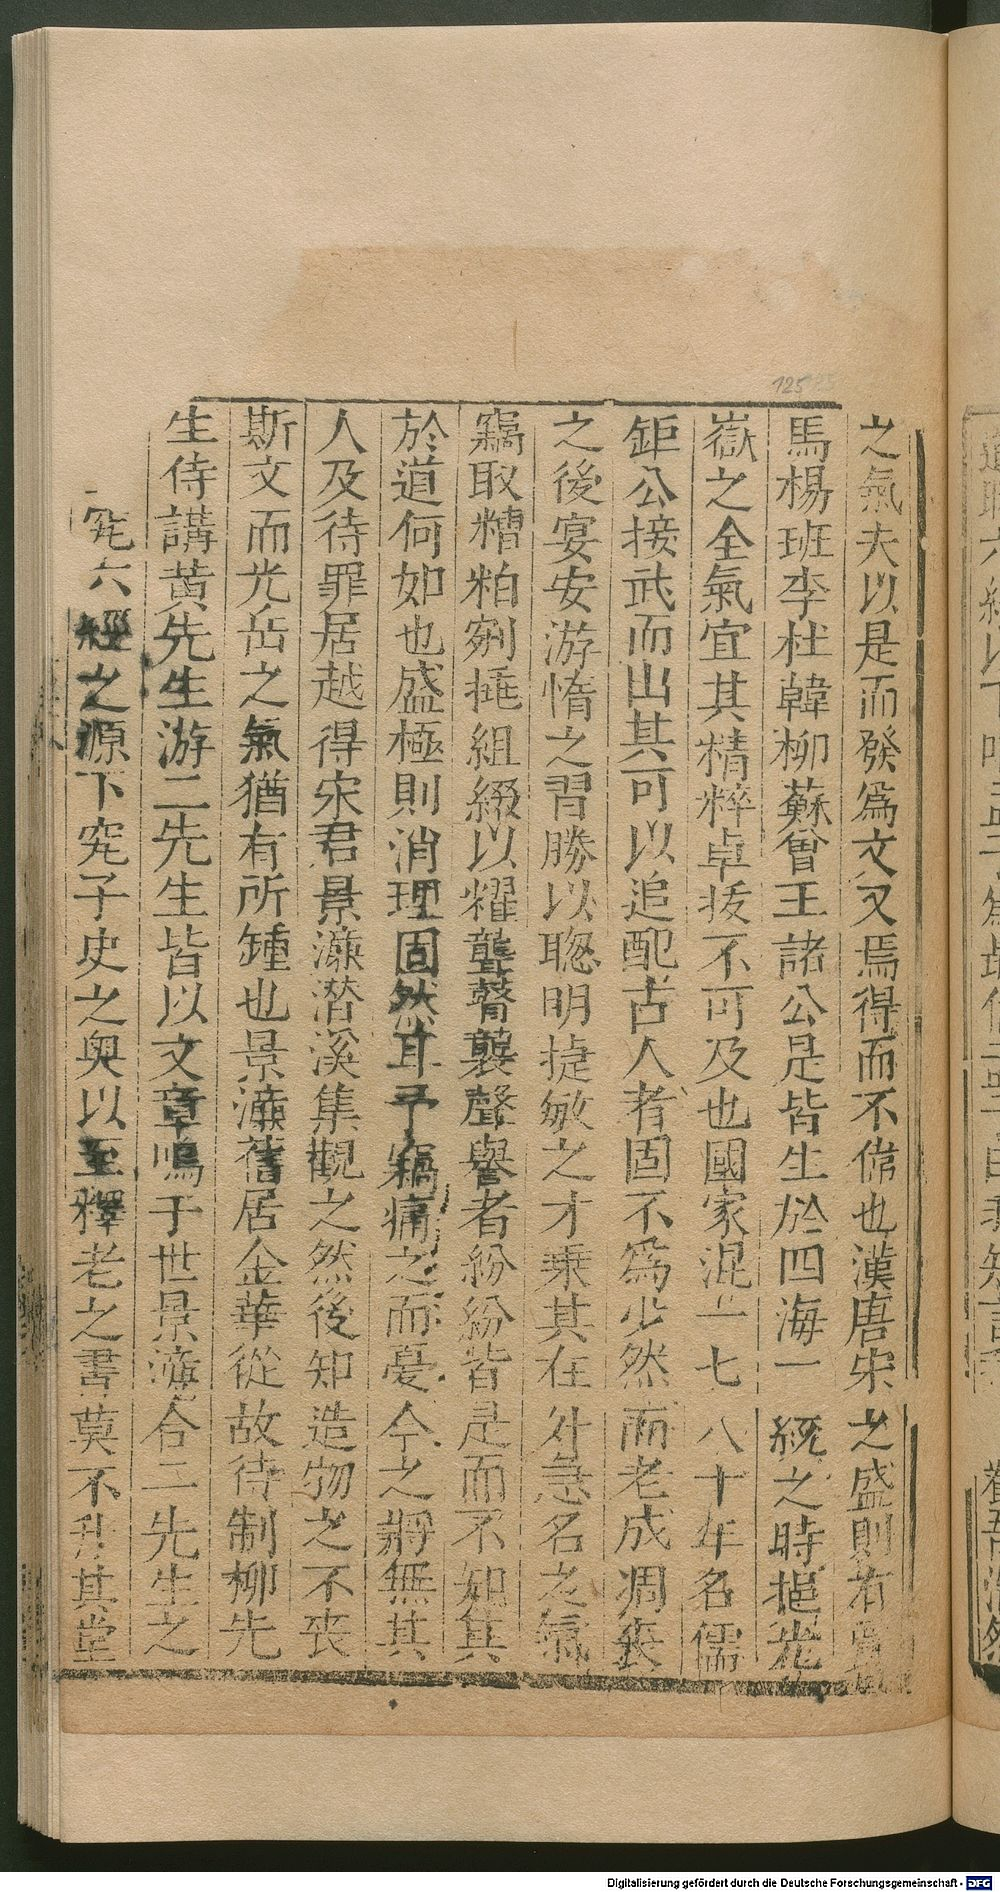 之氣夫以是而發爲文又焉得而不偉也漢唐宋之盛則有
馬楊班李杜韓柳蘇曾王諸公是皆生於四海一統之時挹光
嶽之全氣宜其精粹卓拔不可及也國家混一七八十年名儒
鉅公接武而出其可以追配古人者固不爲少然而老成凋喪
之後宴安游惰之習勝以聦明捷敏之才乗其在外急名之氣
竊取糟粕剜摭組綴以耀聾瞽襲聲譽者紛紛皆是而不知其
於道何如也盛極則消理固然耳予竊痛之而憂今之將無其
人及待罪居越得宋君景濂潜溪集觀之然後知造物之不喪
斯文而光岳之氣猶有所鍾也景濂舊居金華從故待制柳先
生侍講黄先生游二先生皆以文章鳴于世景濂合二先生之
究六經之源下究子史之奥以至釋老之書莫不升其堂
125
Digitalisierung gefördert durch die Deutsche Forschungsgemeinschaft - DFG